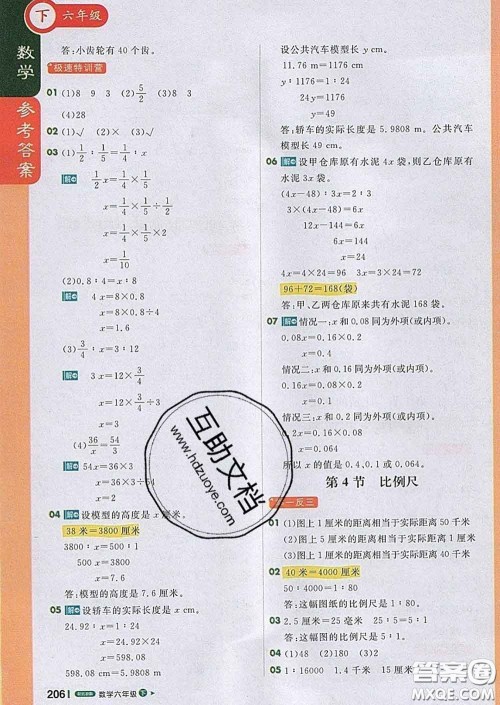 下 六年级
数学
参考答案
答:小齿轮有 40 个齿。
极速特训营
01 (1)8 9 3 (2)5/2 (3)8 3
(4)28
02 (1)√ (2)× (3)√
03 (1)1/2∶1/5=1/4∶x
解 1/2x=1/5×1/4
x=1/5×1/4×2
x=1/10
(2)0.8∶4=8∶x
解 4x=8×0.8
x=2×0.8
x=1.6
(3)3/4∶x=3∶12
解 3x=12×3/4
x=12×3/4÷3
x=3
(4)36/x=54/3
解 54x=36×3
x=36×3÷54
x=2
04 解 设模型的高度是 x 厘米。
38 米=3800 厘米
3800∶x=500∶1
500x=3800
x=7.6
答:模型的高度是 7.6 厘米。
05 解 设轿车的实际长度是 x cm。
x∶24.92=24∶1
x=598.08
598.08 cm=5.9808 m
设公共汽车模型长 y cm。
11.76 m=1176 cm
1176∶y=24∶1
24y=1176
y=49
答:轿车的实际长度是 5.9808 m。公共汽车模型长 49 cm。
06 解 设甲仓库原有水泥 4x 袋,则乙仓库原有水泥 3x 袋。
(4x-48)∶3x=2∶3
3×(4x-48)=6x
6x=144
x=24
4x=4×24=96 3x=3×24=72
96+72=168(袋)
答:甲、乙两仓库原来共有水泥 168 袋。
07 解 情况一:x 和 0.08 同为外项(或内项)。
x=0.4
情况二:x 和 0.16 同为外项(或内项)。
情况三:x 和 0.2 同为外项(或内项)。
x=0.064
所以 x 的值是 0.4,0.1 或 0.064。
第 4 节 比例尺
举一反三
01 (1)图上 1 厘米的距离相当于实际距离 50 千米
(2)图上 1 厘米的距离相当于实际距离 40 千米
02 40 米=4000 厘米
50∶4000=1∶80
答:这幅图纸的比例尺是 1∶80。
03 (1)25 毫米 25∶5=5∶1
答:这幅图的比例尺是 5∶1。
04 (1)48 (2)180 (3)4
05 1∶16000 1.4 千米 13 厘米
206 数学六年级 下
互助文档
www.hdzuoye.com
答案圈
MXQE.COM